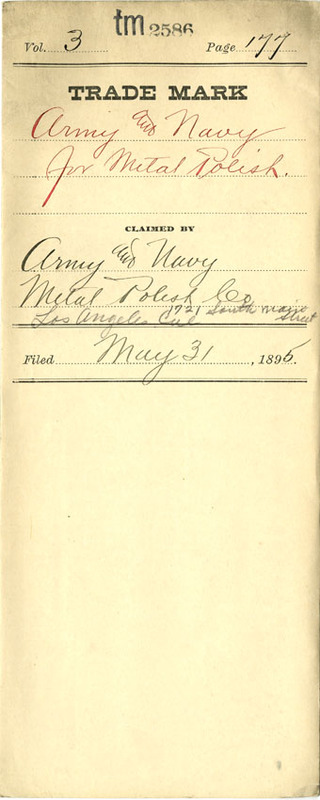 tm 2586
Vol. 3 Page 177
TRADE MARK
Army and Navy
for Metal Polish.
CLAIMED BY
Army and Navy
Metal Polish Co
1721 South Main
Los Angeles Cal Street
Filed May 31, 1895.